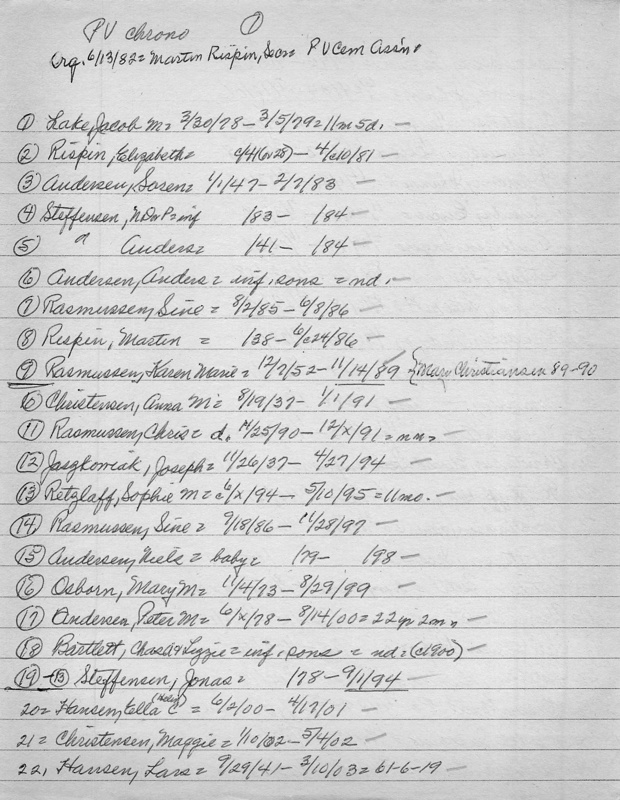 PV chrono ①
Org. 6/13/82 = Martin Rispin, Son = PV Cem Ass'n.
① Lake, Jacob M = 3/30/78 – 3/5/79 = 11m 5d. –
② Rispin, Elizabeth = c/41(or28) – 4/c10/81 –
③ Andersen, Soren = 1/1/47 – 2/7/83 –
④ Steffensen, N P = inf /83 – /84 –
⑤ " Anders = /41 – /84 –
⑥ Andersen, Anders = inf. sons = nd. –
⑦ Rasmussen, Sine = 8/2/85 – 6/8/86 –
⑧ Rispin, Martin = /38 – 6/c24/86 –
⑨ Rasmussen, Karen Marie = 12/7/52 – 11/14/89 {Mary Christiansen 89-90
⑩ Christensen, Anna M = 8/19/37 – 1/1/91 –
⑪ Rasmussen, Chris = d. 11/25/90 – 12/x/91 = nn = –
⑫ Jaszkowiak, Joseph = 11/26/37 – 4/27/94 –
⑬ Retzlaff, Sophie M = c6/x/94 – 5/10/95 = 11mo. –
⑭ Rasmussen, Sine = 9/18/86 – 11/28/97 –
⑮ Andersen, Niels = baby = /79 – /98 –
⑯ Osborn, Mary M = 11/4/73 – 8/29/99 –
⑰ Andersen, Peter M = 6/x/78 – 8/14/00 = 22yr 2m –
⑱ Bartlett, Chas A & Lizzie = inf. sons = nd = (c1900) –
⑲ – ⑬ Steffensen, Jonas = /78 – 9/1/94 –
20 = Hansen, Ella (Helen) C = 6/2/00 – 4/17/01 –
21 = Christensen, Maggie = 1/10/02 – 5/4/02 –
22, Hansen, Lars = 9/29/41 – 3/10/03 = 61-6-19 –